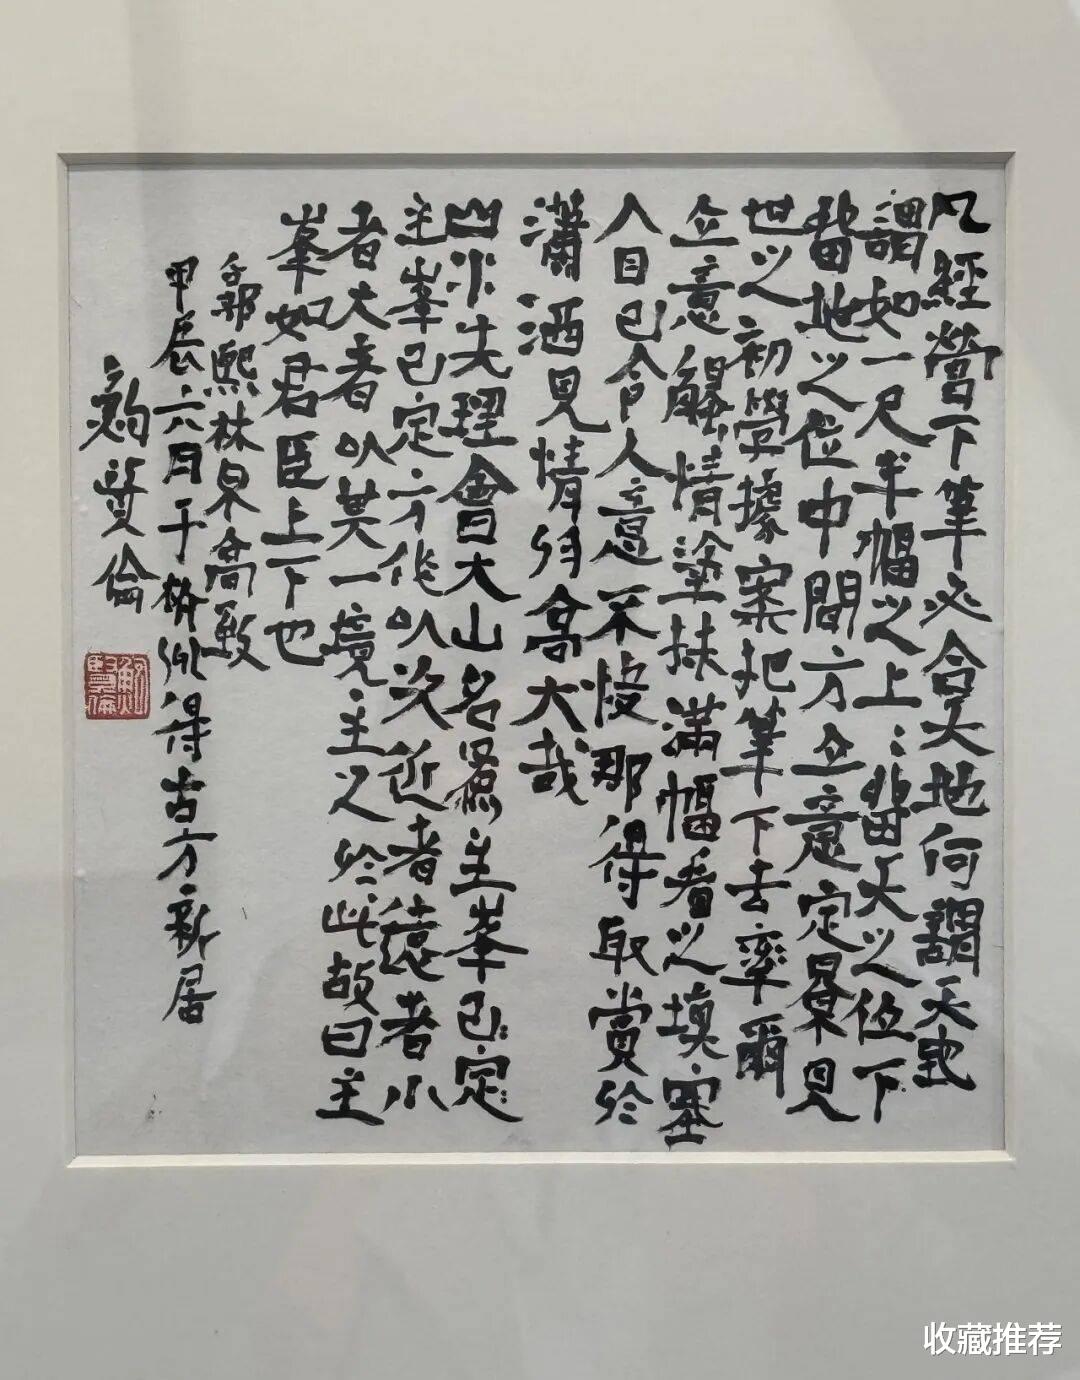 凡經營下筆必合天地何謂天地
謂如一尺半幅之上:留天之位下
留地之位中間方立意定景見
世之初學據案把筆下去率爾
立意觸情塗抹滿幅看之填塞
人目已令人意不快那得取賞於
瀟洒見情於高大哉
山水先理會大山名爲主峯主峯已定:
主峯已定方作以次近者遠者小
者大者以其一境主之於此故曰主
峯如君臣上下也
郭熙林泉高致
甲辰六月于杭州得古方新居
收藏推荐